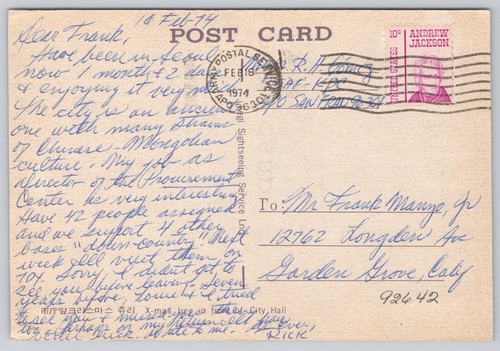 10 Feb 74
POST CARD
Dear Frank,
Have been in Seoul
now 1 month & 2 days
& enjoying it very much
The city is an ancient
one with many strains
of Chinese-Mongolian
culture. My job as
director of the Procurement
Center is very interesting
Have 42 people assigned
and we support 4 other
bases "down country" Next
week I'll visit them on
TDY. Sorry I didn't get to
see you before leaving. Seven
years before, Louise & I tried
to see you & missed
Rick
R.H. Young
APO San Fran 96301
ARMY POSTAL SERVICE
FEB 18
1974
10c
ANDREW
JACKSON
UNITED STATES
Sightseeing Service
To: Mr Frank Manzo, Jr
12762 Longden Av
Garden Grove, Calif
92642
市庁앞크리스마스 츄리 X-mas tree in front of City Hall